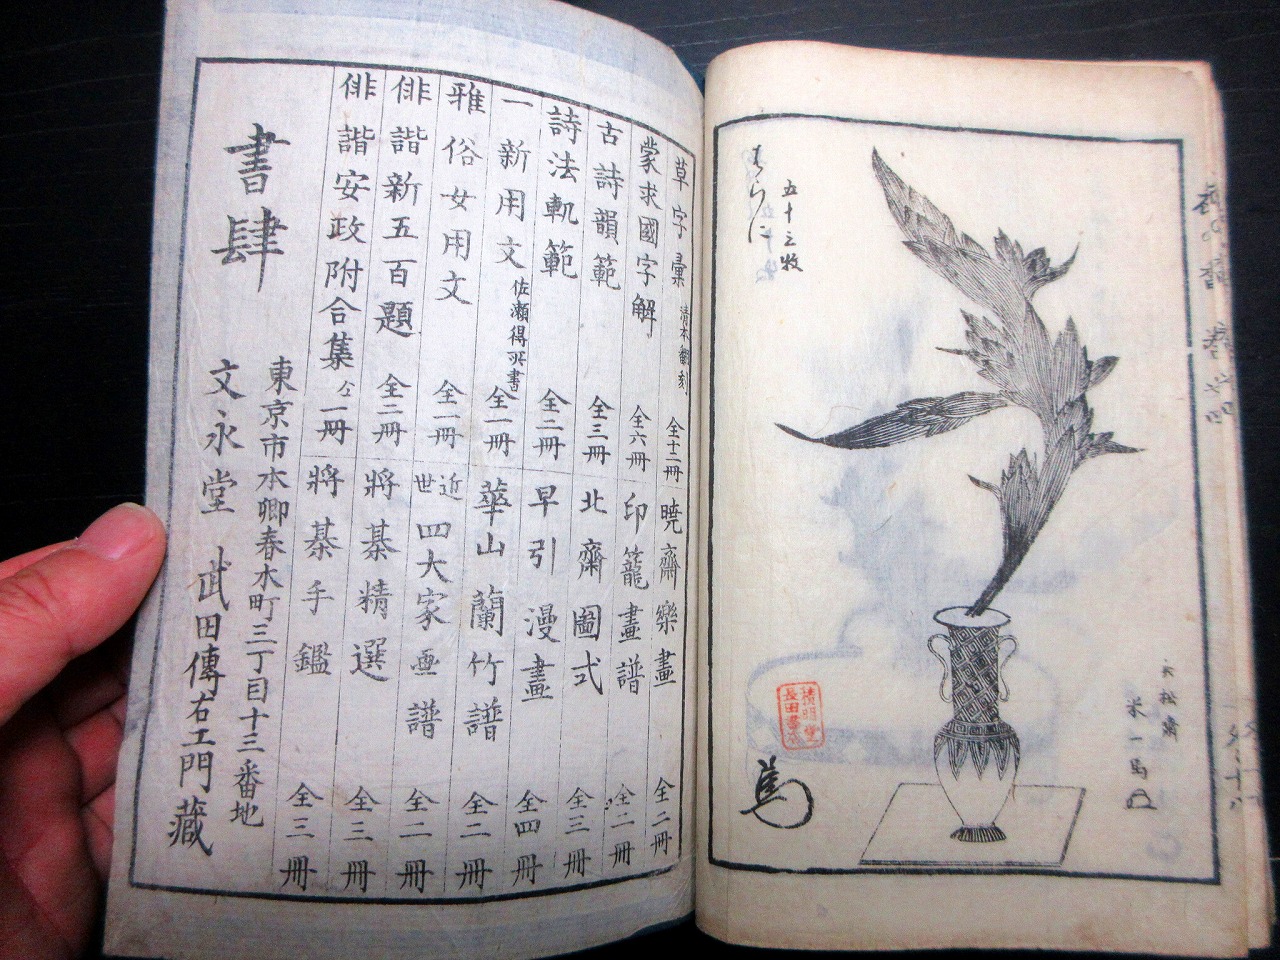 五十三牧
はらに
永松齋
米一馬
積明堂
長田書
草字彙 清本翻刻 全十二冊
蒙求國字解 全六冊
古詩韻範 全三冊
詩法軌範 全二冊
一新用文 佐瀬得所書 全一冊
雅俗女用文 全一冊
俳諧新五百題 全二冊
俳諧安政附合集 仝一冊
曉齋樂畫 全二冊
印籠畫譜 全二冊
北齋圖式 全三冊
早引漫畫 全四冊
華山蘭竹譜 全二冊
近世四大家画譜 全二冊
將棊精選 全三冊
將棊手鑑 全三冊
東京市本鄉春木町三丁目十三番地
書肆 文永堂 武田傳右エ門藏